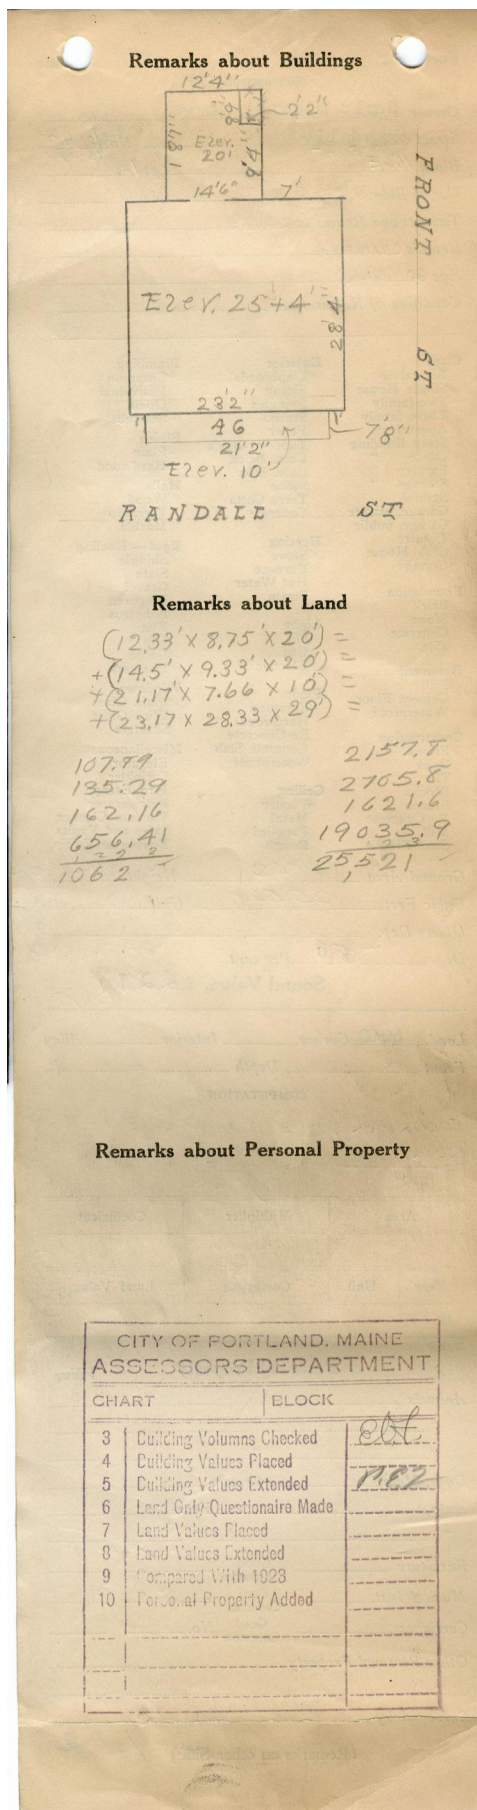 Remarks about Buildings
12'4"
2'2"
18'1"
Elev.
20'
14'6"
7'
FRONT ST
Elev. 25'+4'=
28'4
23'2"
1"
46
1'
7'8"
21'2"
Elev. 10'
RANDALL ST
Remarks about Land
(12,33' X 8,75' X 20') =
+(14.5' X 9.33' X 20') =
+(21.17' X 7.66 X 10') =
+(23,17 X 28.33 X 29') =
107.89 2157.8
135.29 2705.8
162,16 1621.6
656,41 19035,9
1062 25,521
Remarks about Personal Property
CITY OF PORTLAND, MAINE
ASSESSORS DEPARTMENT
CHART BLOCK
3 Building Volumns Checked
4 Building Values Placed
5 Building Values Extended
6 Land Only Questionaire Made
7 Land Values Placed
8 Land Values Extended
9 Compared With 1923
10 Personal Property Added